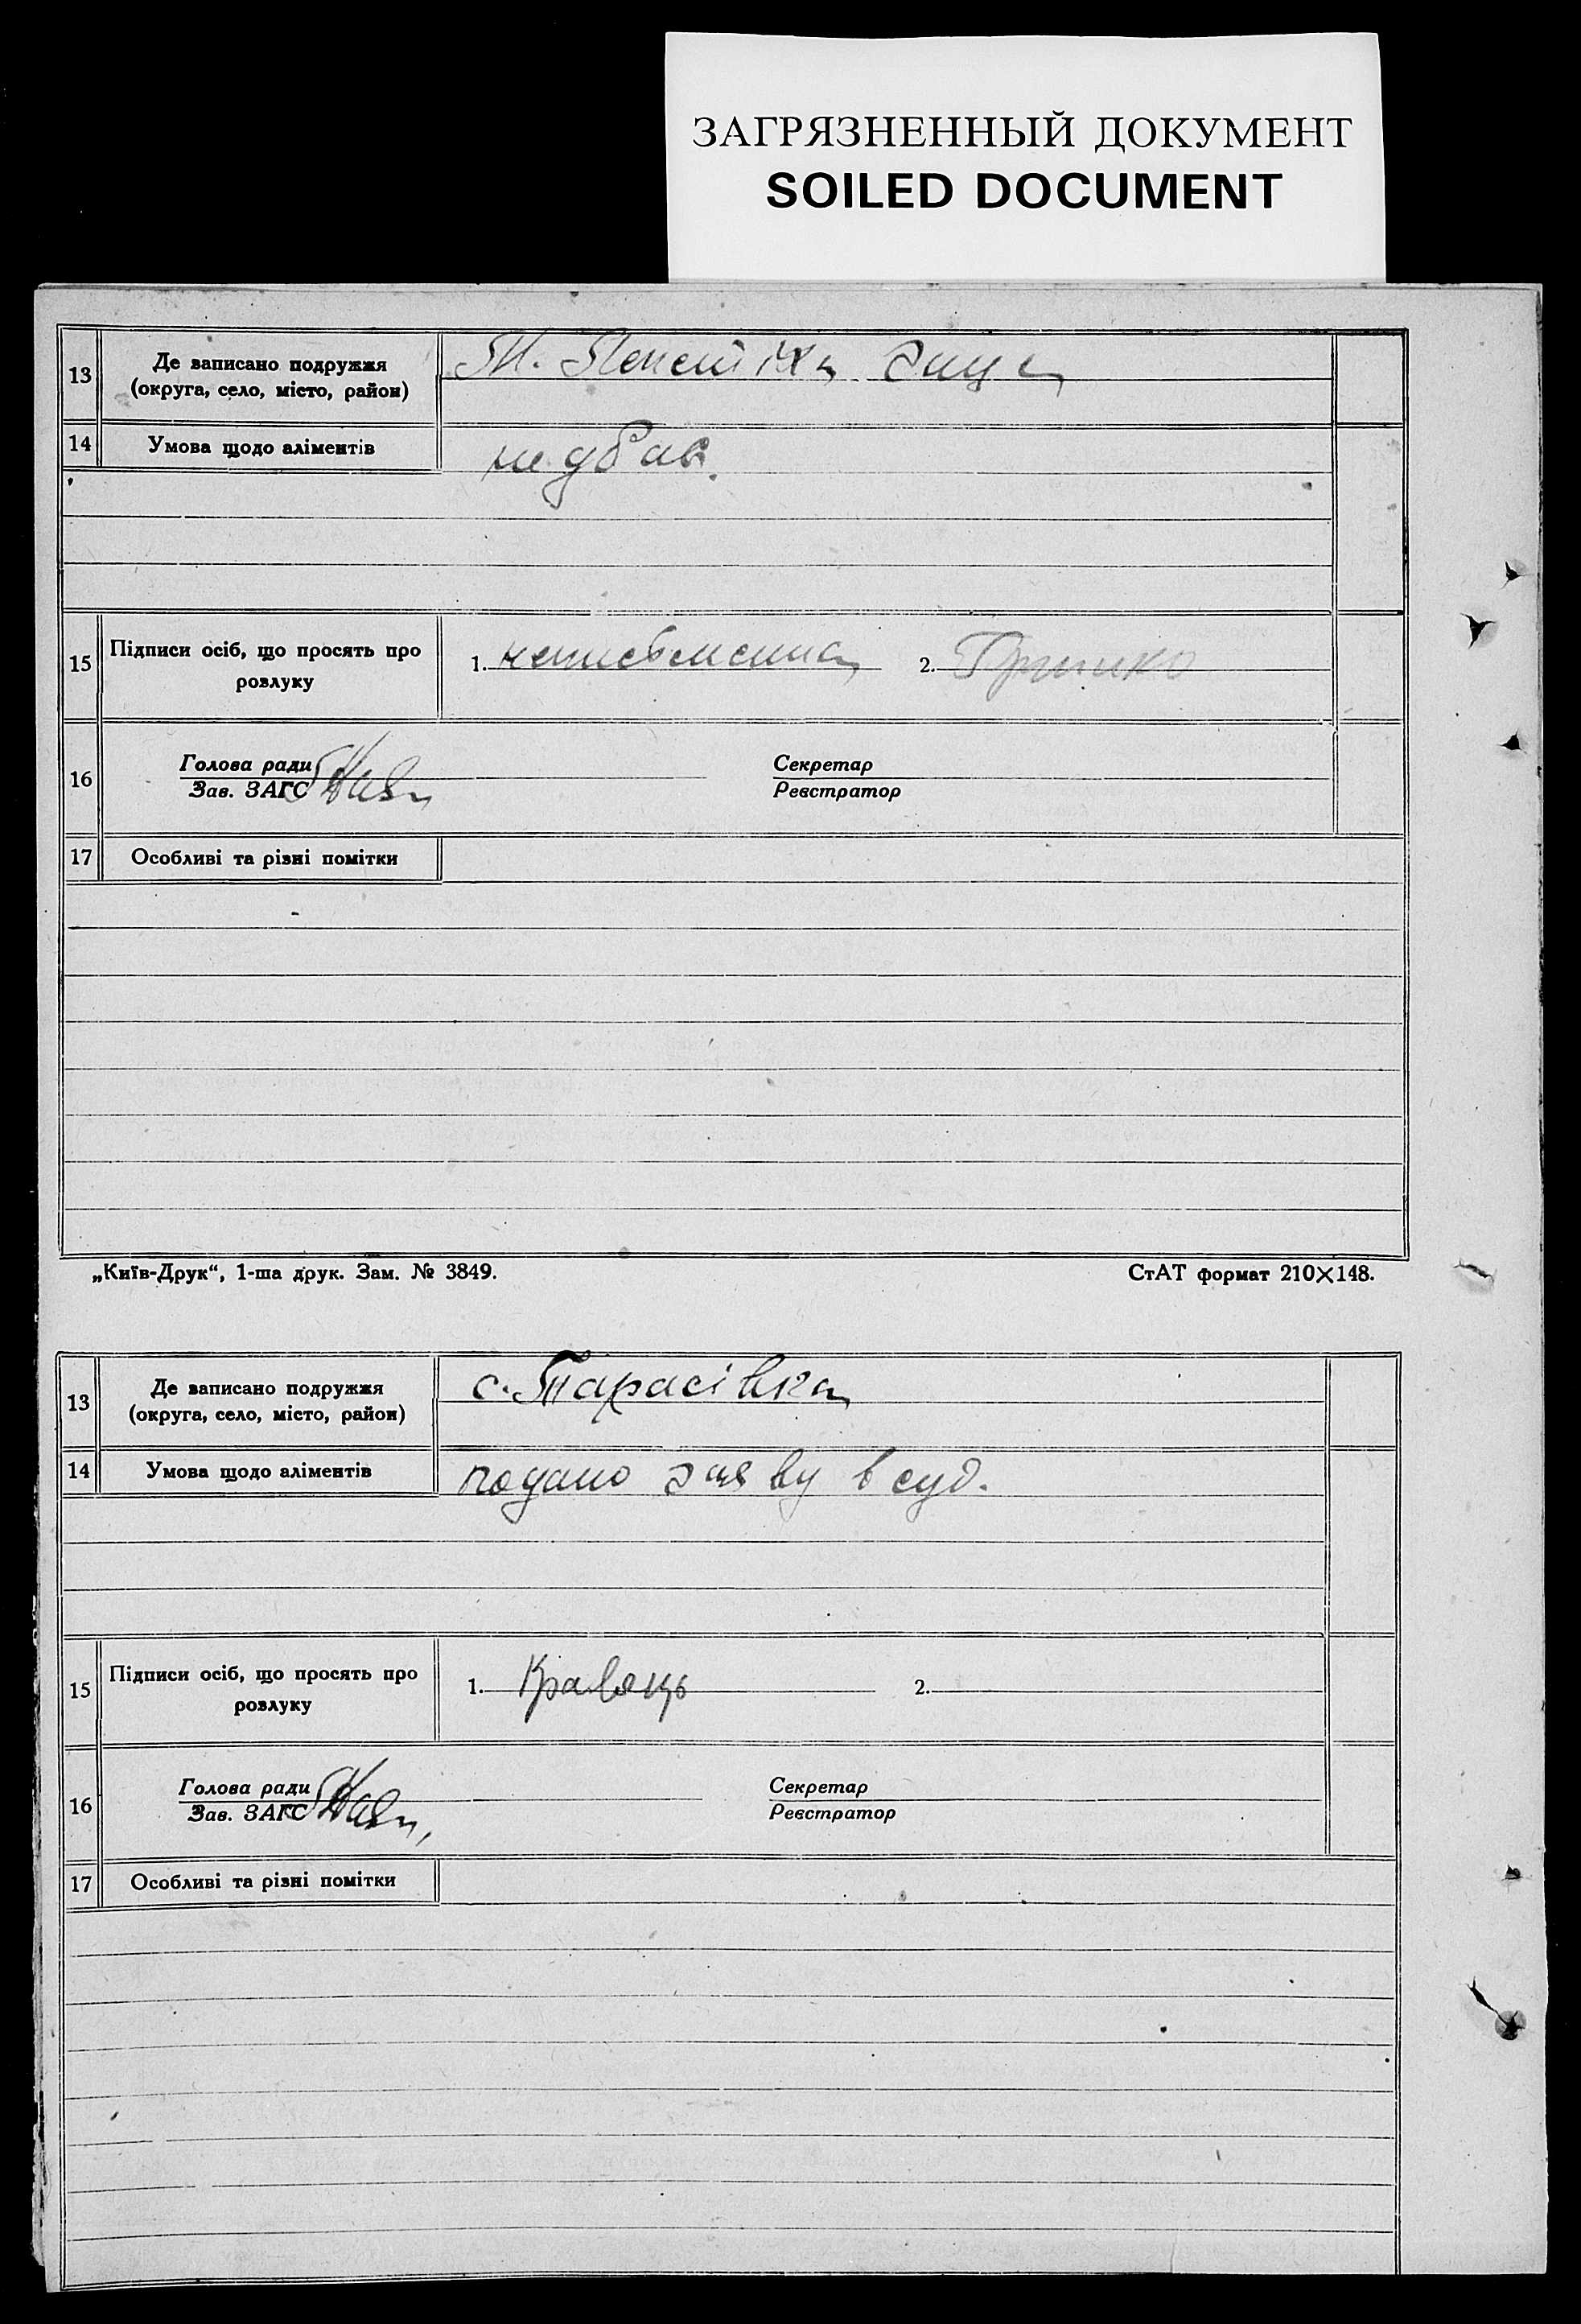 ЗАГРЯЗНЕННЫЙ ДОКУМЕНТ
SOILED DOCUMENT
13
Де записано подружжя
(округа, село, місто, район)
14
Умова щодо аліментів
15
Підписи осіб, що просять про
розлуку
1. неписьменна 2. Гринко
16
Голова ради
Зав. ЗАГС
Секретар
Реєстратор
17
Особливі та різні помітки
„Київ-Друк“, 1-ша друк. Зам. № 3849.
СтАТ формат 210×148.
13
Де записано подружжя
(округа, село, місто, район)
с. Тарасівка
14
Умова щодо аліментів
подано заяву в суд.
15
Підписи осіб, що просять про
розлуку
1. Кравець 2.
16
Голова ради
Зав. ЗАГС
Секретар
Реєстратор
17
Особливі та різні помітки